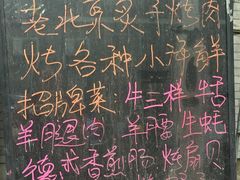 老北京炙子烤肉
烤各种小海鲜
招牌菜:牛三样 牛舌
羊腿肉 羊腰 生蚝
德式香煎肠 烤扇贝